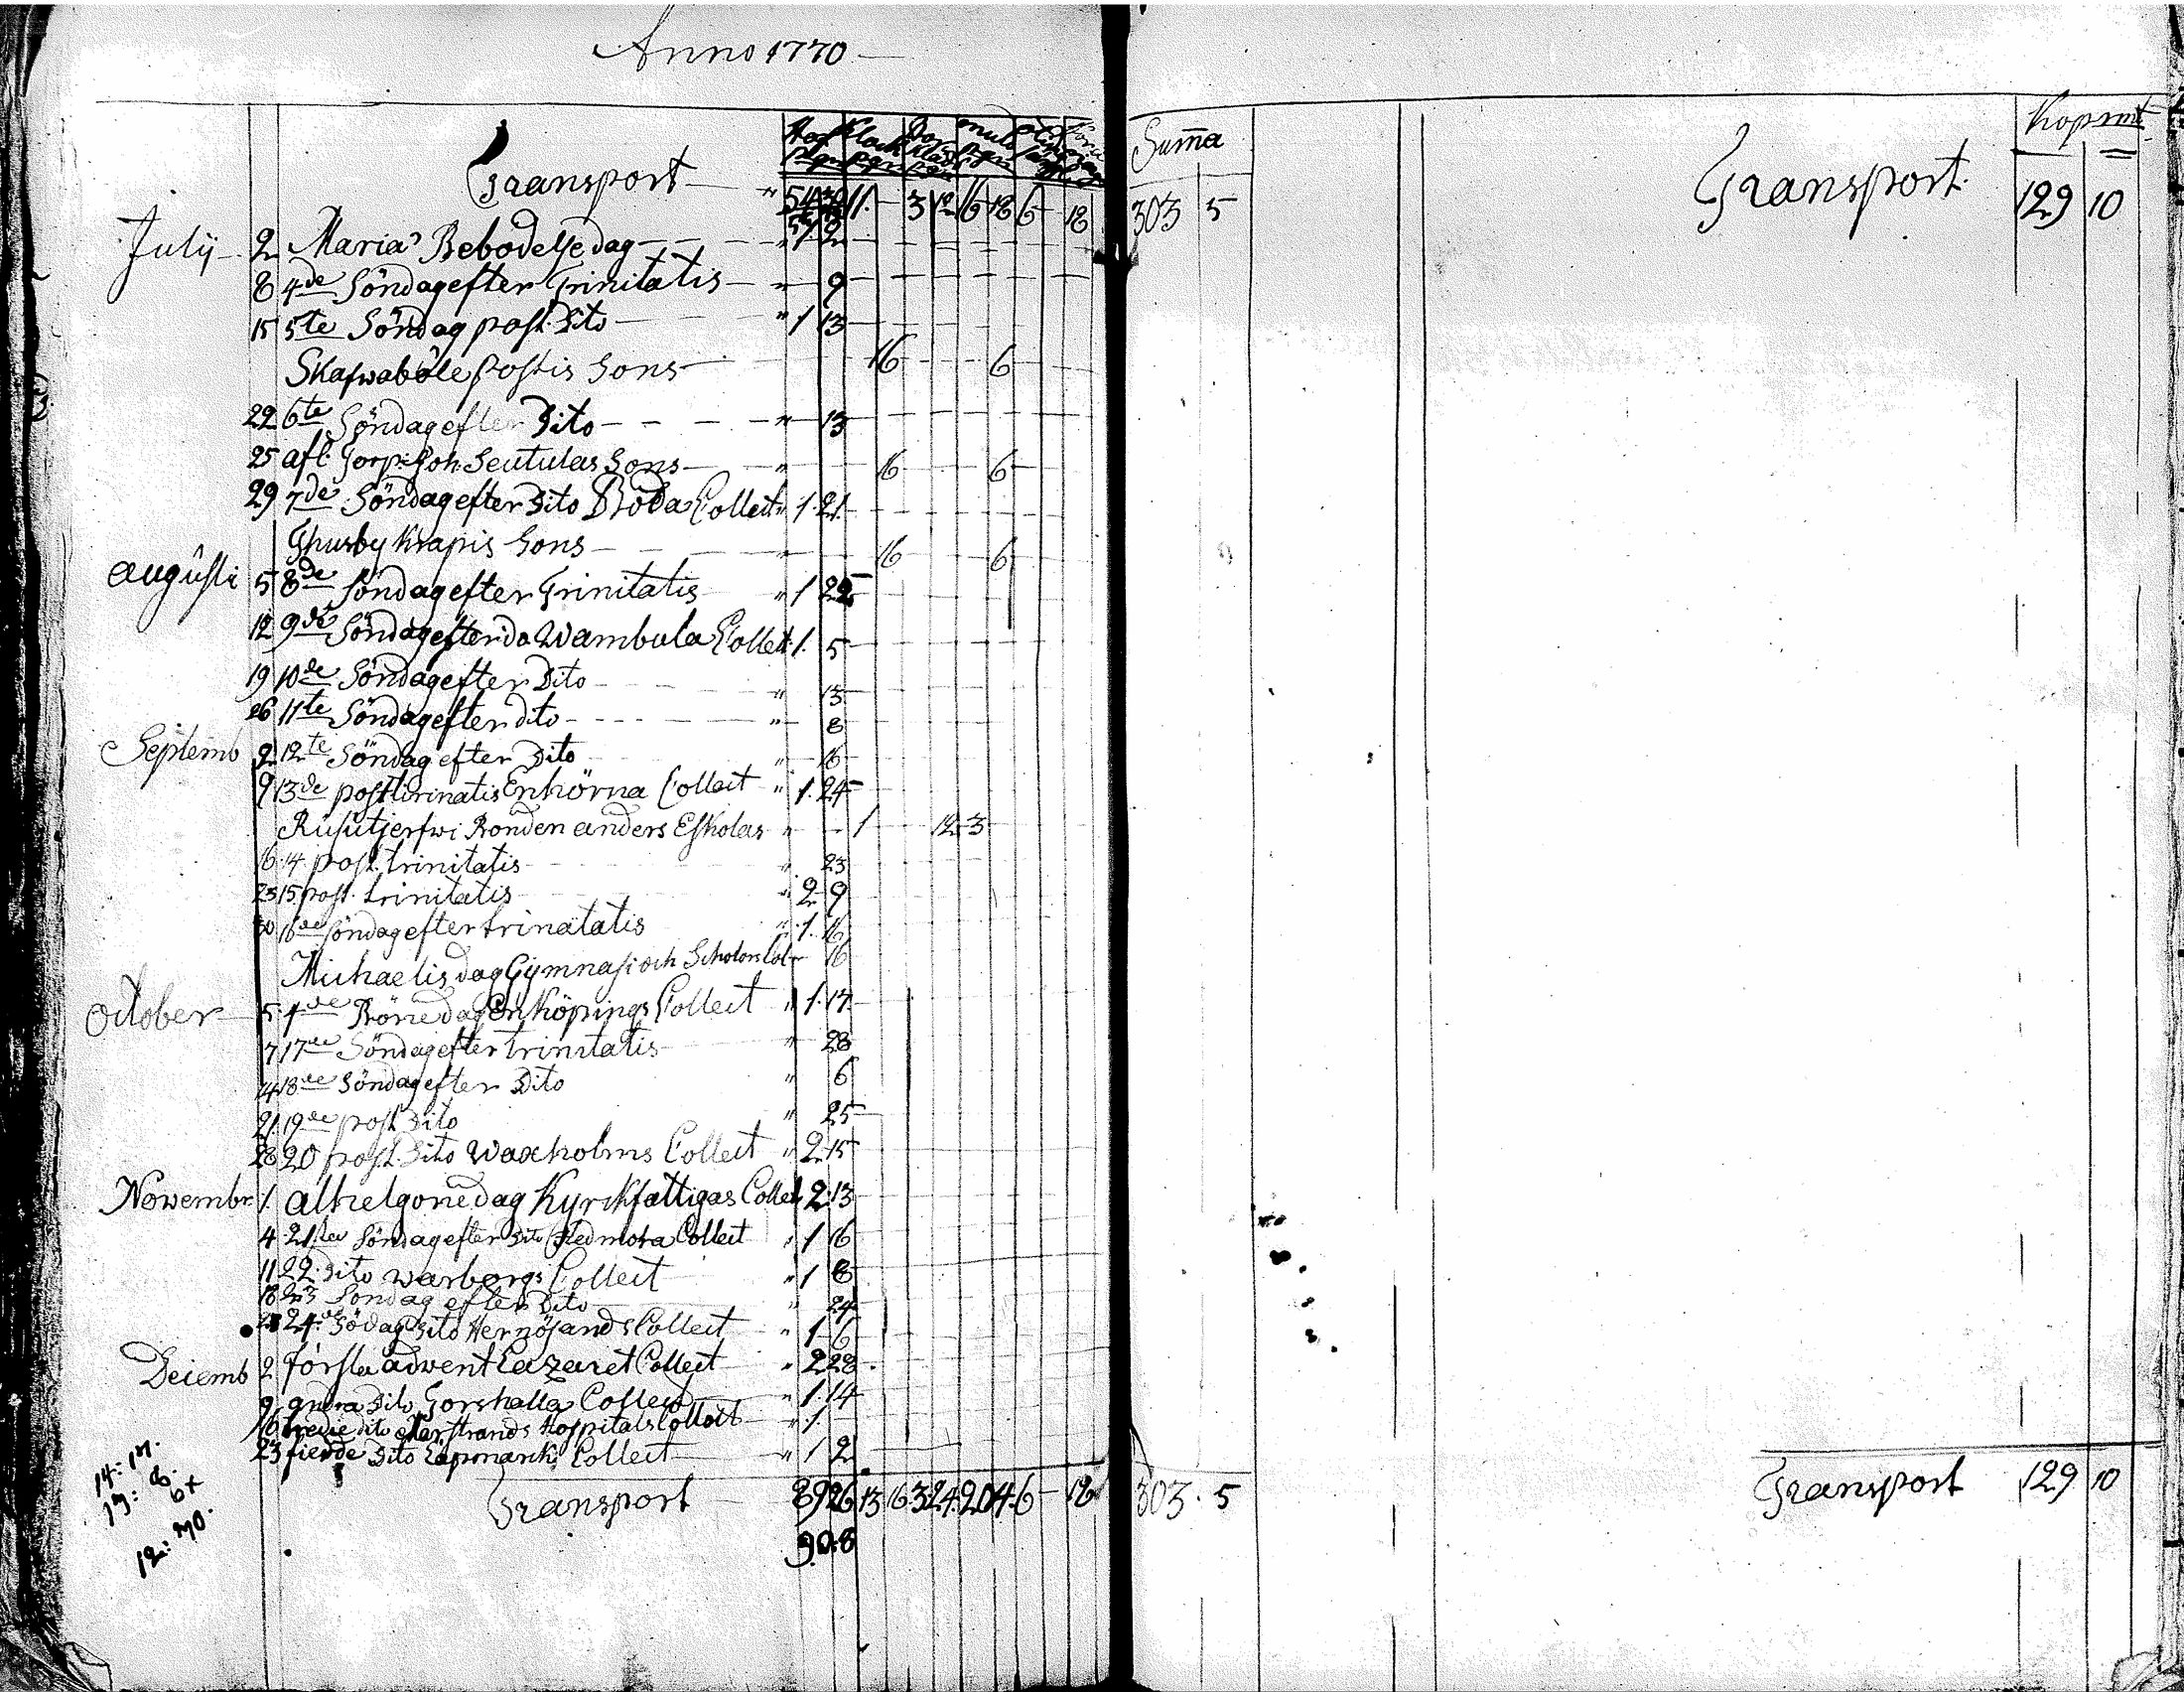 Anno 1770
Transport 11. 3 12 16 18 6 18
July 2 Mariæ Bebodelse dag 1 2
8 4de Söndag efter Trinitatis 9
15 5te Söndag post. Dito 1 13
Skafwaböle Postis Sons 16 6
22 6te Söndag efter Dito 13
25 afl: Torp: Joh. Seutulas Sons 16 6
29 7de Söndag efter Dito Boda Collect 1. 21
Thusby Krapis Sons 16 6
Augusti 5 8de Söndag efter Trinitatis 1 22
12 9de Söndag efter do Wambula Collect 1. 5
19 10de Söndag efter Dito 13
26 11te Söndag efter dito 8
Septemb 2 12te Söndag efter Dito 16
9 13de post trinatis Enhörna Collect 1. 24
Rusutjerfwi Bonden anders Eskolas 1 12 3
16 14 post. trinitatis 23
23 15 post. trinitatis 2 9
30 16de Söndag efter trinätatis 1. 16
Michaelis dag Gymnasi och Scholors Col 16
October 5 4de Bönedag Enköpings Collect 1. 17
7 17de Söndag efter trinitatis 28
14 18de Söndag efter Dito 6
21 19de post Dito 25
28 20 post. Dito Waxholms Collect 2 15
Nowembr 1. alhelgonedag Kyrkfattigas Collect 2 13
4 21sta Söndag efter Dito Hedmora Collect 1 16
11 22 Dito warborgs Collect 1 8
18 23 Söndag efter Dito 24
24 Södag Dito Hernösands Collect 1 6
Decemb 2 första adwent Lazaret Collect 2 28
9 andra Dito Torshalla Collect 1. 14
16 tredie dito Marstrands Hospitals Collect 1
23 fierde Dito Lapmarck: Collect 1 2
Transport 89 26 13 16 3 24 20 4 6 18
90.8
Suma
303 5
303. 5
Kopmt
Transport. 129 10
Transport 129 10